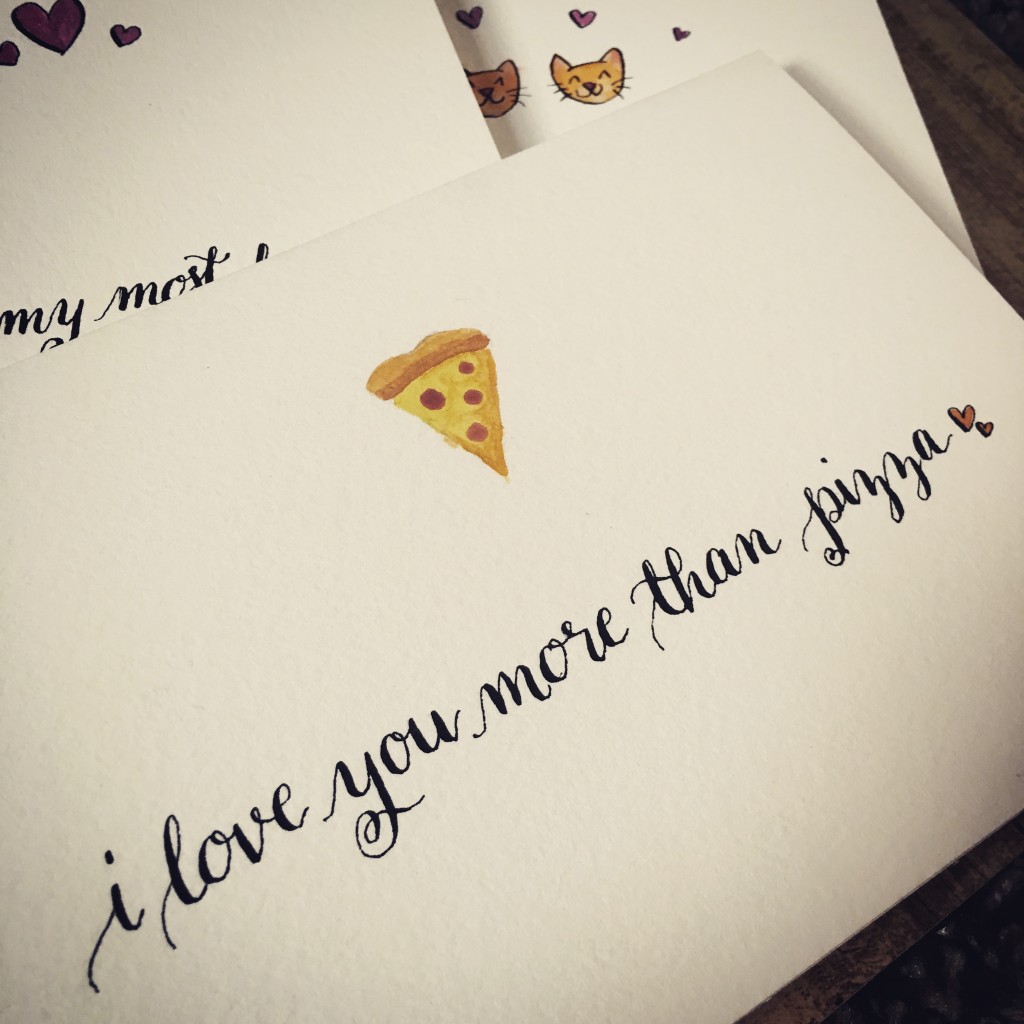 my most
i love you more than pizza